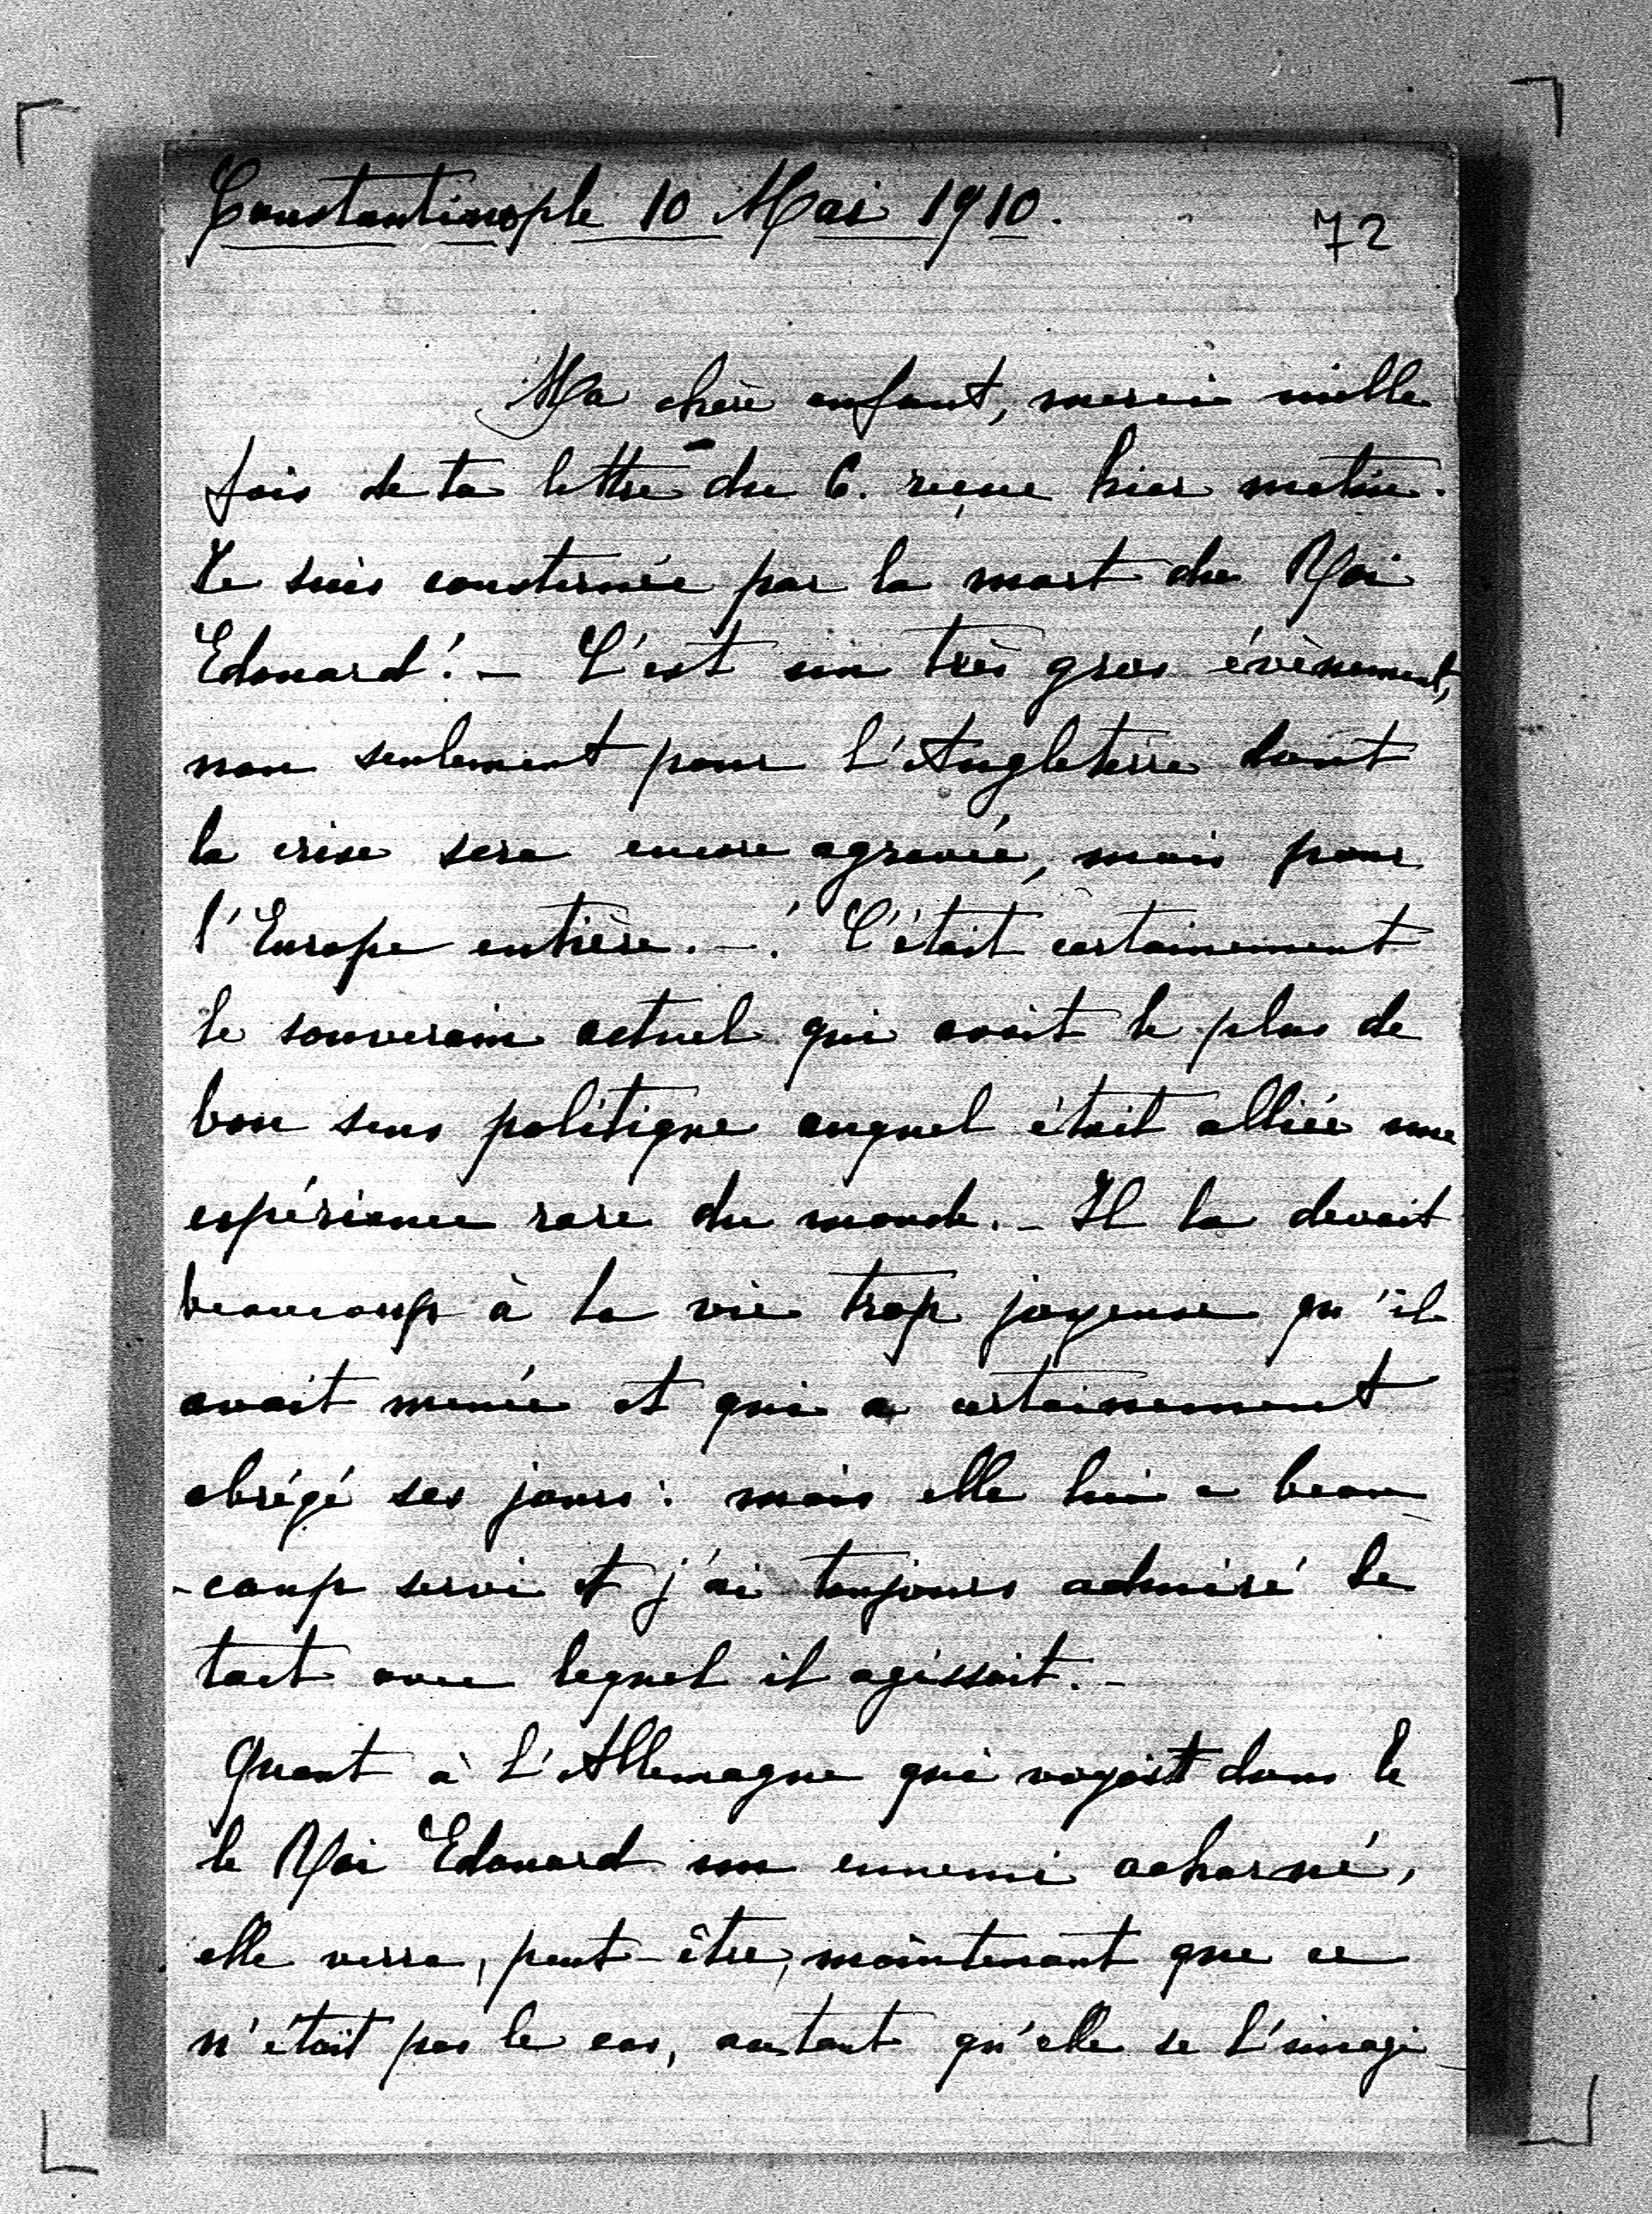 Constantinople 10 Mai 1910.
72
Ma chère enfant, merci mille
fois de ta lettre du 6. reçue hier matin.
Je suis consternée par la mort du Roi
Edouard! — C'est un très gros évènement,
non seulement pour l'Angleterre dont
la crise sera encore agravée, mais pour
l'Europe entière. —! C'était certainement
le souverain actuel qui avait le plus de
bon sens politique auquel était alliée une
expérience rare du monde. — Il la devait
beaucoup à la vie trop joyeuse qu'il
avait menée et qui a certainement
abrégé ses jours: mais elle lui a beau
-coup servi et j'ai toujours admiré le
tact avec lequel il agissait. —
Quant à l'Allemagne qui voyait dans le
le Roi Edouard un ennemi acharné,
elle verra, peut-être, maintenant que ce
n'était pas le cas, autant qu'elle se l'imagi